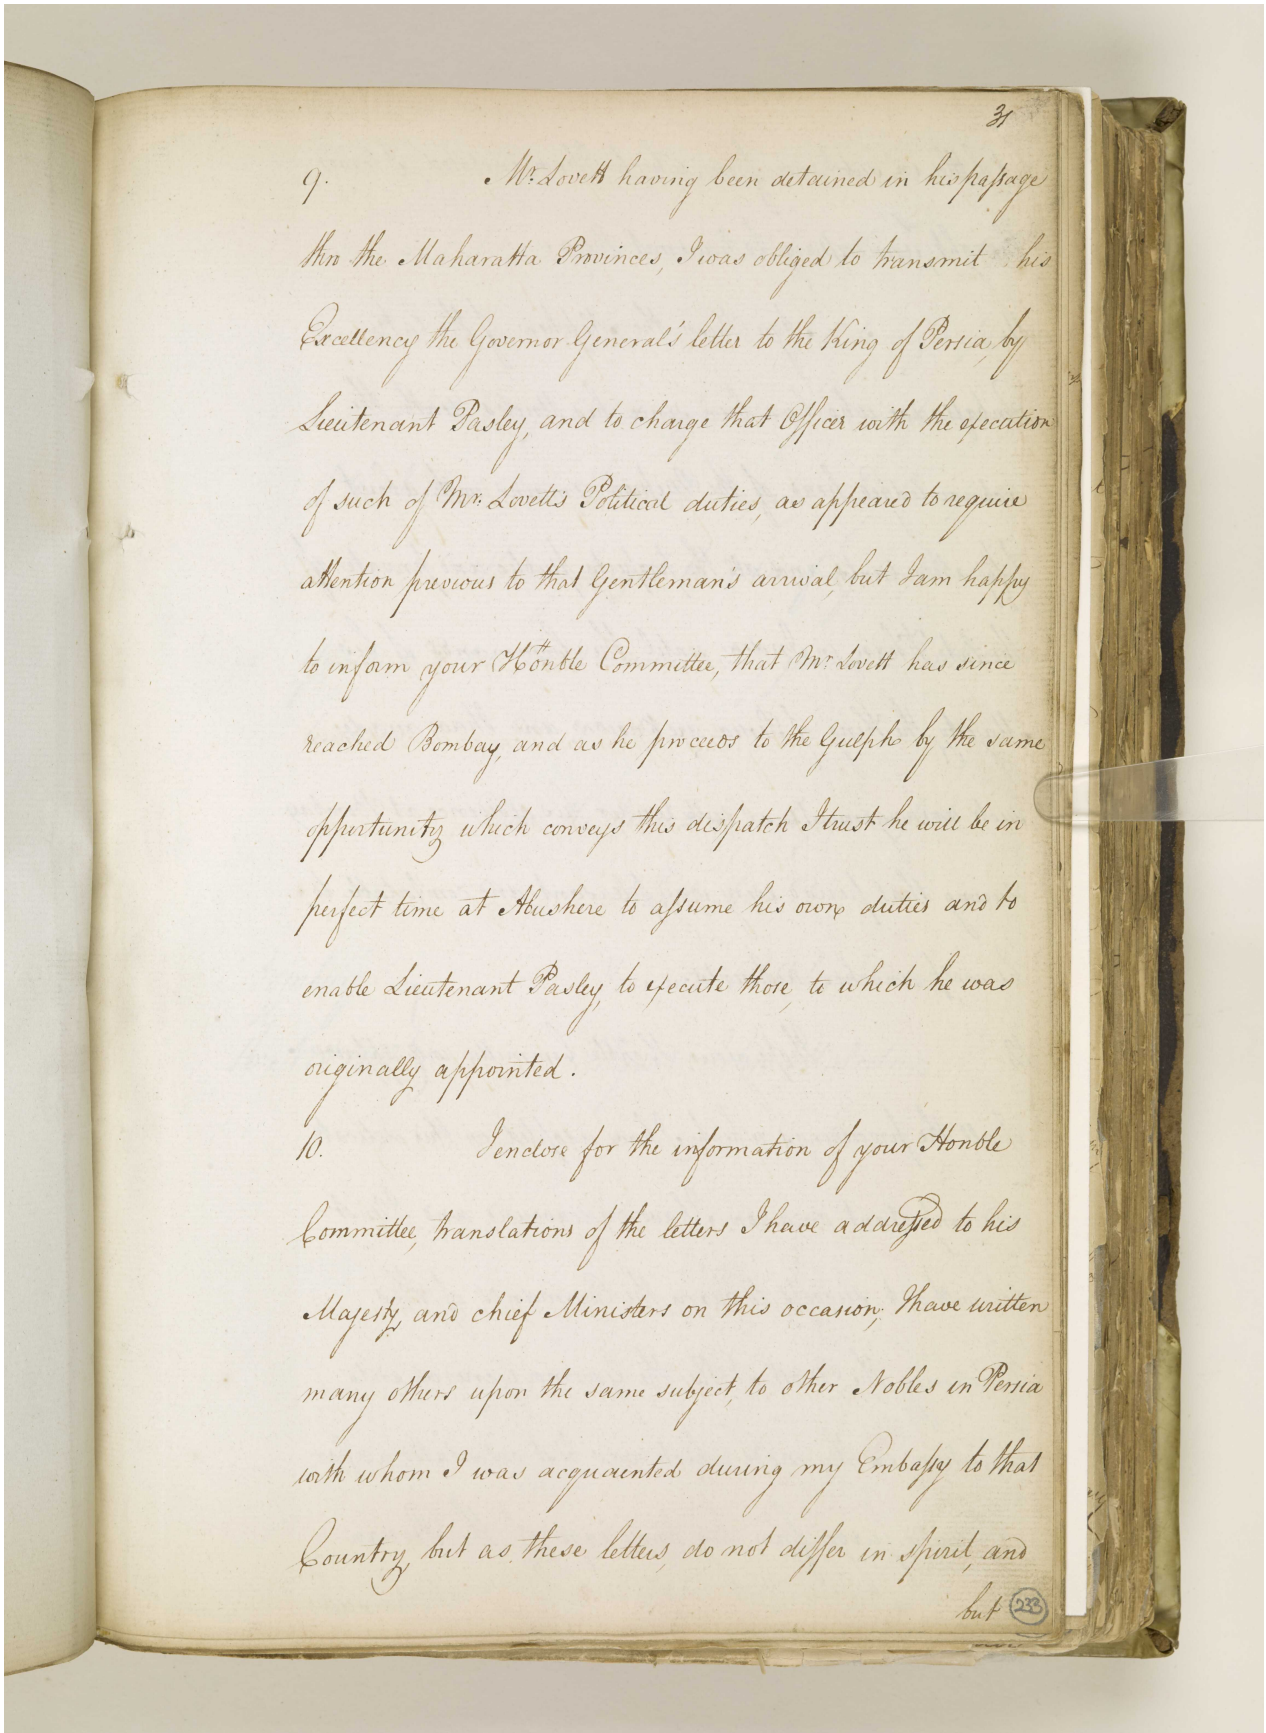 31
9. Mr. Lovett having been detained in his passage
thro the Maharatta Provinces, I was obliged to transmit his
Excellency the Governor General's letter to the King of Persia, by
Lieutenant Pasley, and to charge that Officer with the execution
of such of Mr. Lovett's Political duties, as appeared to require
attention previous to that Gentleman's arrival, but I am happy
to inform your Honble Committee, that Mr. Lovett has since
reached Bombay, and as he proceeds to the Gulph by the same
opportunity which conveys this dispatch I trust he will be in
perfect time at Abushere to assume his own duties and to
enable Lieutenant Pasley, to execute those, to which he was
originally appointed.
10. I enclose for the information of your Honble
Committee, translations of the letters I have addressed to his
Majesty, and chief Ministers on this occasion; I have written
many others upon the same subject, to other Nobles in Persia
with whom I was acquainted during my Embassy to that
Country, but as these letters, do not differ in spirit, and
but 233